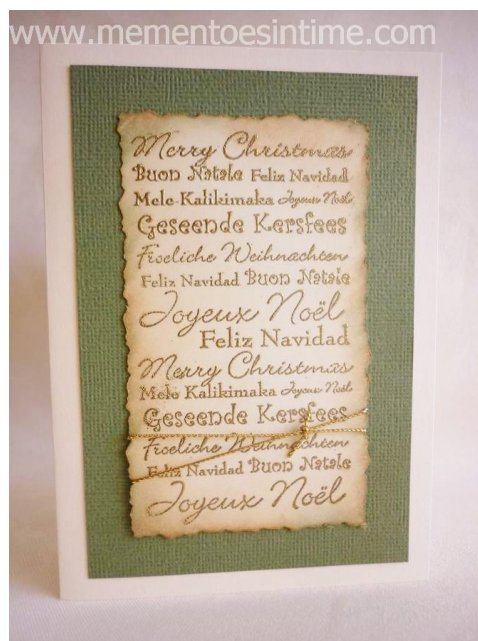 www.mementoesintime.com
Merry Christmas
Buon Natale Feliz Navidad
Mele Kalikimaka Joyeux Noël
Geseende Kersfees
Froeliche Weihnachten
Feliz Navidad Buon Natale
Joyeux Noël
Feliz Navidad
Merry Christmas
Mele Kalikimaka Joyeux Noël
Geseende Kersfees
Froeliche Weihnachten
Feliz Navidad Buon Natale
Joyeux Noël